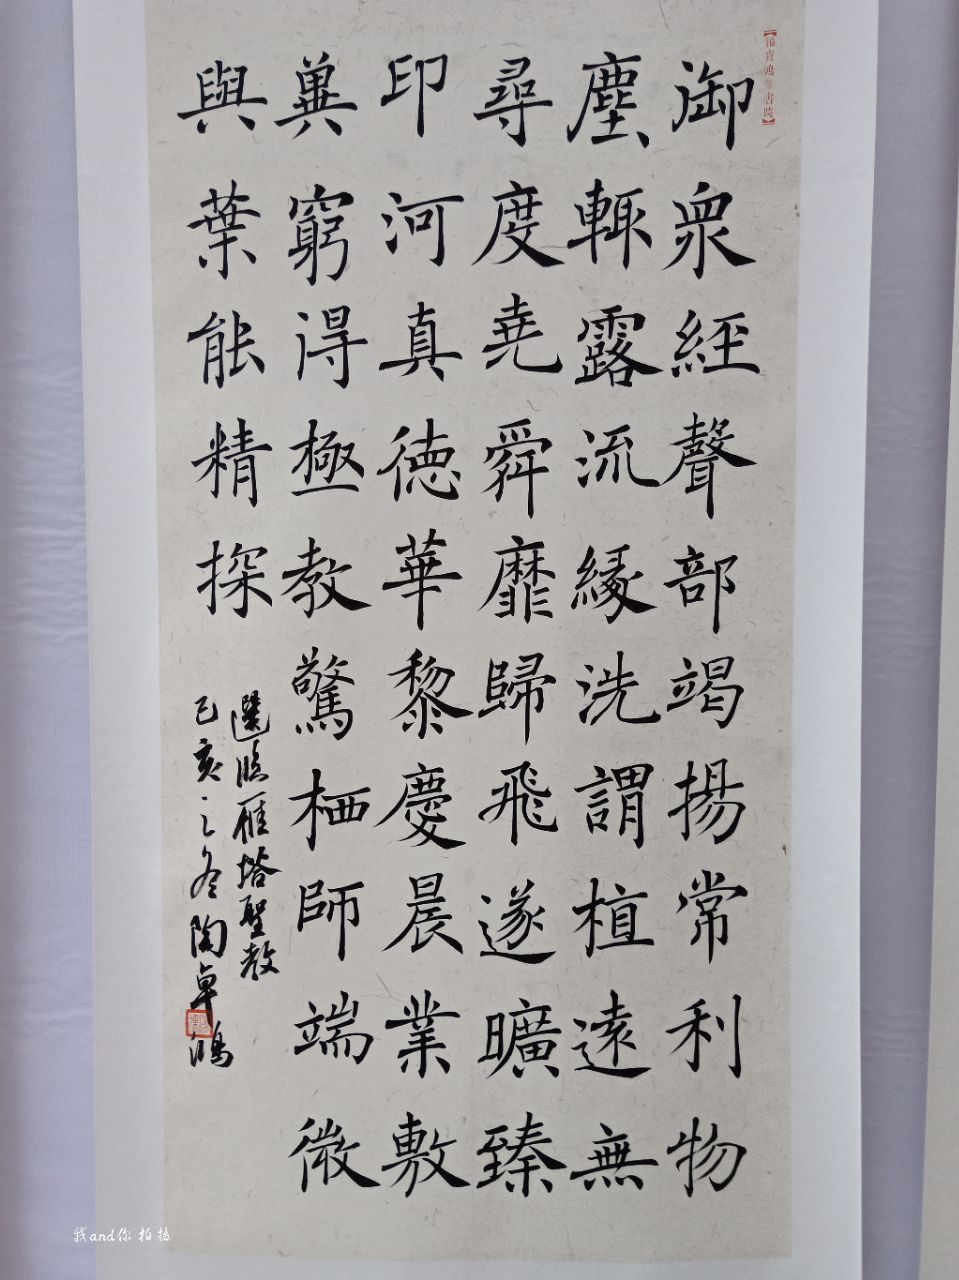 御衆經聲部竭揚常利物
塵輙露流縁洗謂植遠無
尋度堯舜靡歸飛遂曠臻
印河真德華黎慶晨業敷
冀窮得極教驚栖師端微
與葉能精探
選臨雁塔聖教
己亥之冬陶卓鴻
我and你 拍摄